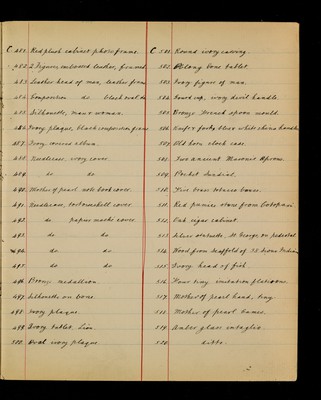 C 481. Red plush cabinet photo frame.
482. 2 Figures embossed leather, framed.
483. Leather head of man, leather frame
484. Composition do black oval do
485. Silhouette, man & woman.
486. Ivory plaque, black composition frame
487. Ivory covered album.
488. Needlecase, ivory cover.
489. do do
490. Mother of pearl note book cover.
491. Needlecase, tortoiseshell cover.
492. do papier mache cover.
493. do do
494. do do
495. do do
496. Bronze medallion.
497. Silhouette on bone.
498. Ivory plaque.
499. Ivory tablet, Lion.
500. Oval ivory plaque
C 501. Round ivory carving.
502. Ebony bone tablet.
503. Ivory figure of man.
504. Gourd cup, ivory devil handle
505. Bronze Burmese spoon mould.
506. Knife & fork, blue & white china handles
507. Old horn clock case.
508. Two ancient Masonic Aprons.
509. Pocket Sundial.
510. Five brass tobacco boxes.
511. Red pumice stone from Cotopaxi
512. Oak cigar cabinet.
513. Silver statuette, St George, on pedestal
514. Wood from scaffold of 38 Sioux Indians
515. Ivory head of fish
516. Four tiny imitation platinum.
517. Mother of pearl hand, tiny.
518. Mother of pearl
519. Amber glass intaglio
520. ditto.
2